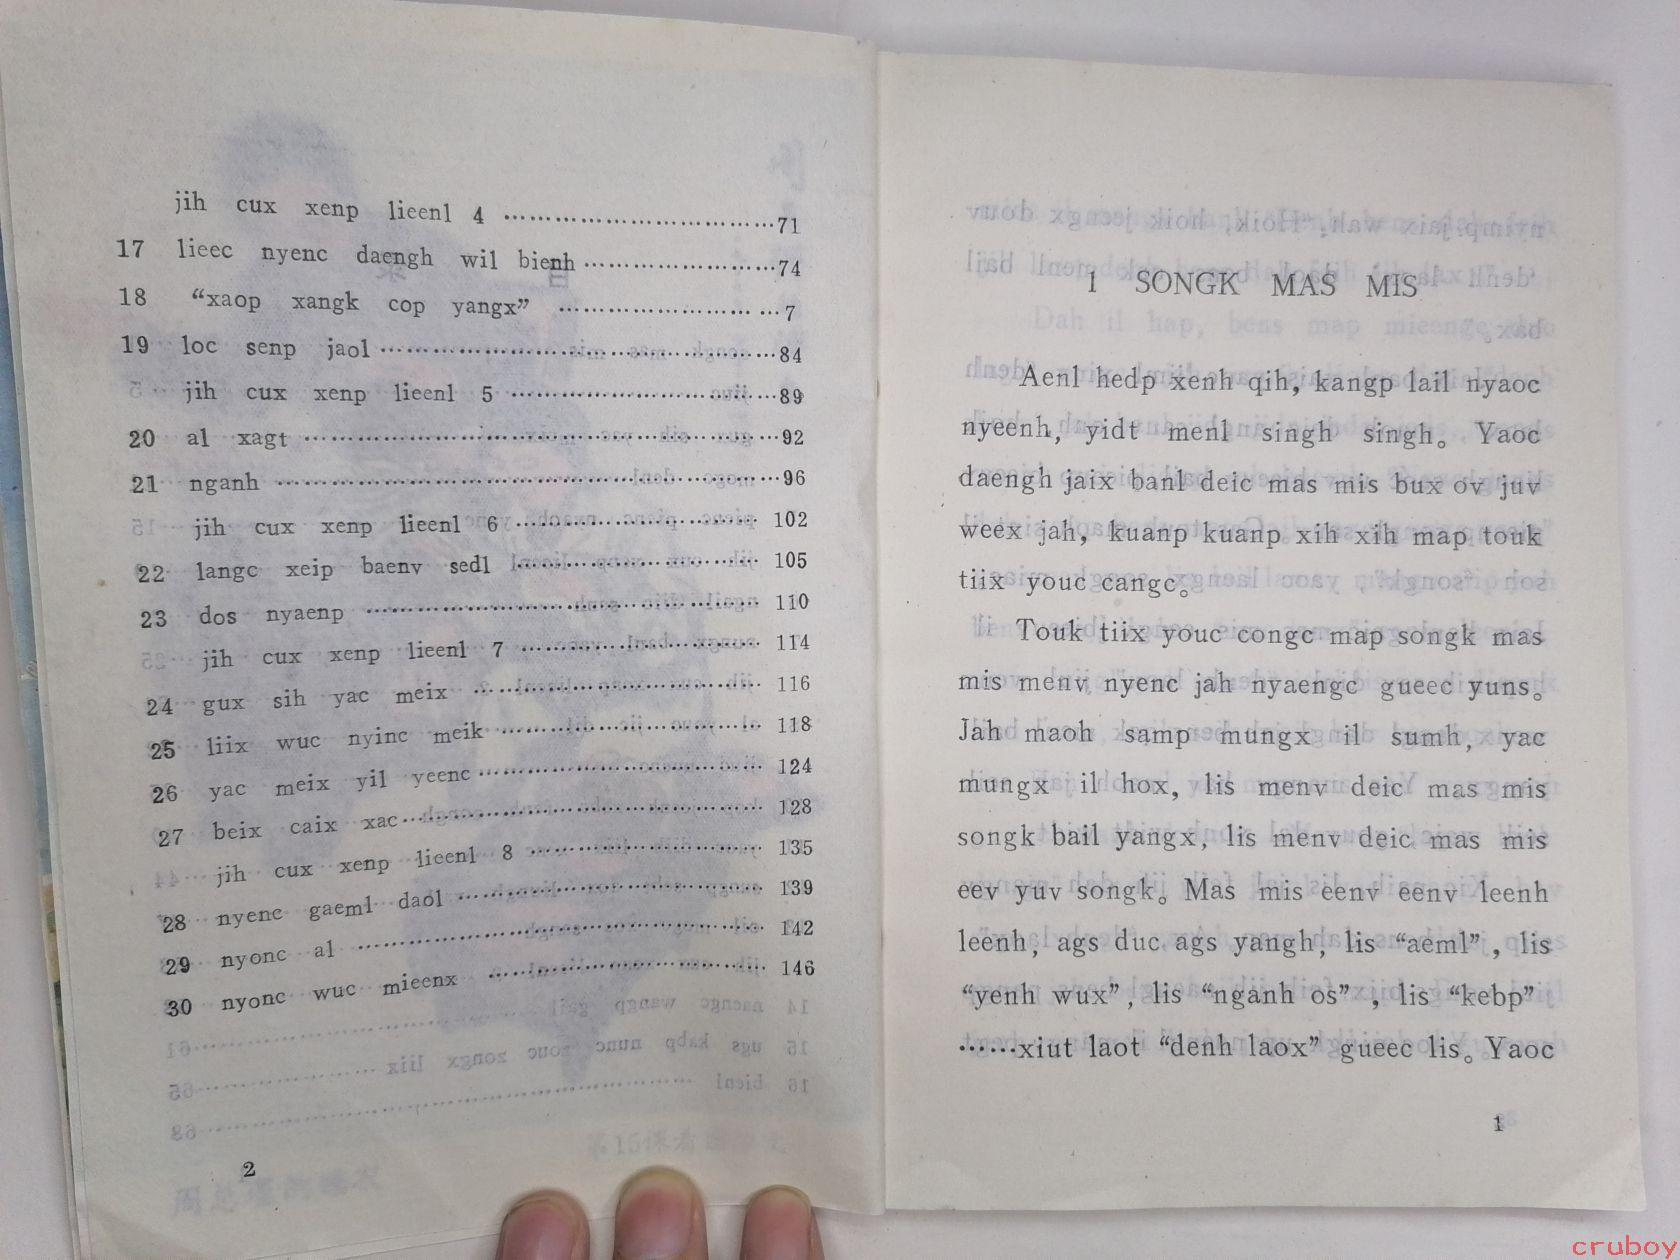 jih cux xenp lieenl 4 ………………………… 71
17 lieec nyenc daengh wil bienh …………………… 74
18 “xaop xangk cop yangx” …………………… 7
19 loc senp jaol ………………………………… 84
jih cux xenp lieenl 5 ……………………… 89
20 al xagt ……………………………………… 92
21 nganh ………………………………………… 96
jih cux xenp lieenl 6 ……………………… 102
22 langc xeip baenv sedl ……………………… 105
23 dos nyaenp ………………………………… 110
jih cux xenp lieenl 7 ……………………… 114
24 gux sih yac meix ………………………… 116
25 liix wuc nyinc meik ……………………… 118
26 yac meix yil yeenc ……………………… 124
27 beix caix xac ……………………………… 128
jih cux xenp lieenl 8 ……………………… 135
28 nyenc gaeml daol ………………………… 139
29 nyonc al …………………………………… 142
30 nyonc wuc mieenx ………………………… 146
2
1 SONGK MAS MIS
Aenl hedp xenh qih, kangp lail nyaoc
nyeenh, yidt menl singh singh。 Yaoc
daengh jaix banl deic mas mis bux ov juv
weex jah, kuanp kuanp xih xih map touk
tiix youc cangc。
Touk tiix youc congc map songk mas
mis menv nyenc jah nyaengc gueec yuns。
Jah maoh samp mungx il sumh, yac
mungx il hox, lis menv deic mas mis
songk bail yangx, lis menv deic mas mis
eev yuv songk。 Mas mis eenv eenv leenh
leenh, ags duc ags yangh, lis “aeml”, lis
“yenh wux”, lis “nganh os”, lis “kebp”
……xiut laot “denh laox” gueec lis。 Yaoc
1
cruboy